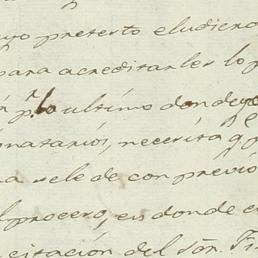 pretexto eludieron
para acreditarles lo p
p.r lo ultimo donde ye
onatarios, necesita q p
a se le de con previo
l proceso, en donde e
citación del Sōn. Fi